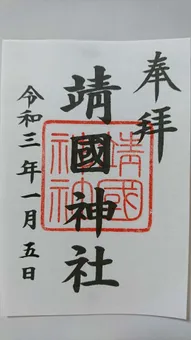 奉拝
靖國神社
靖國神社
令和三年一月五日